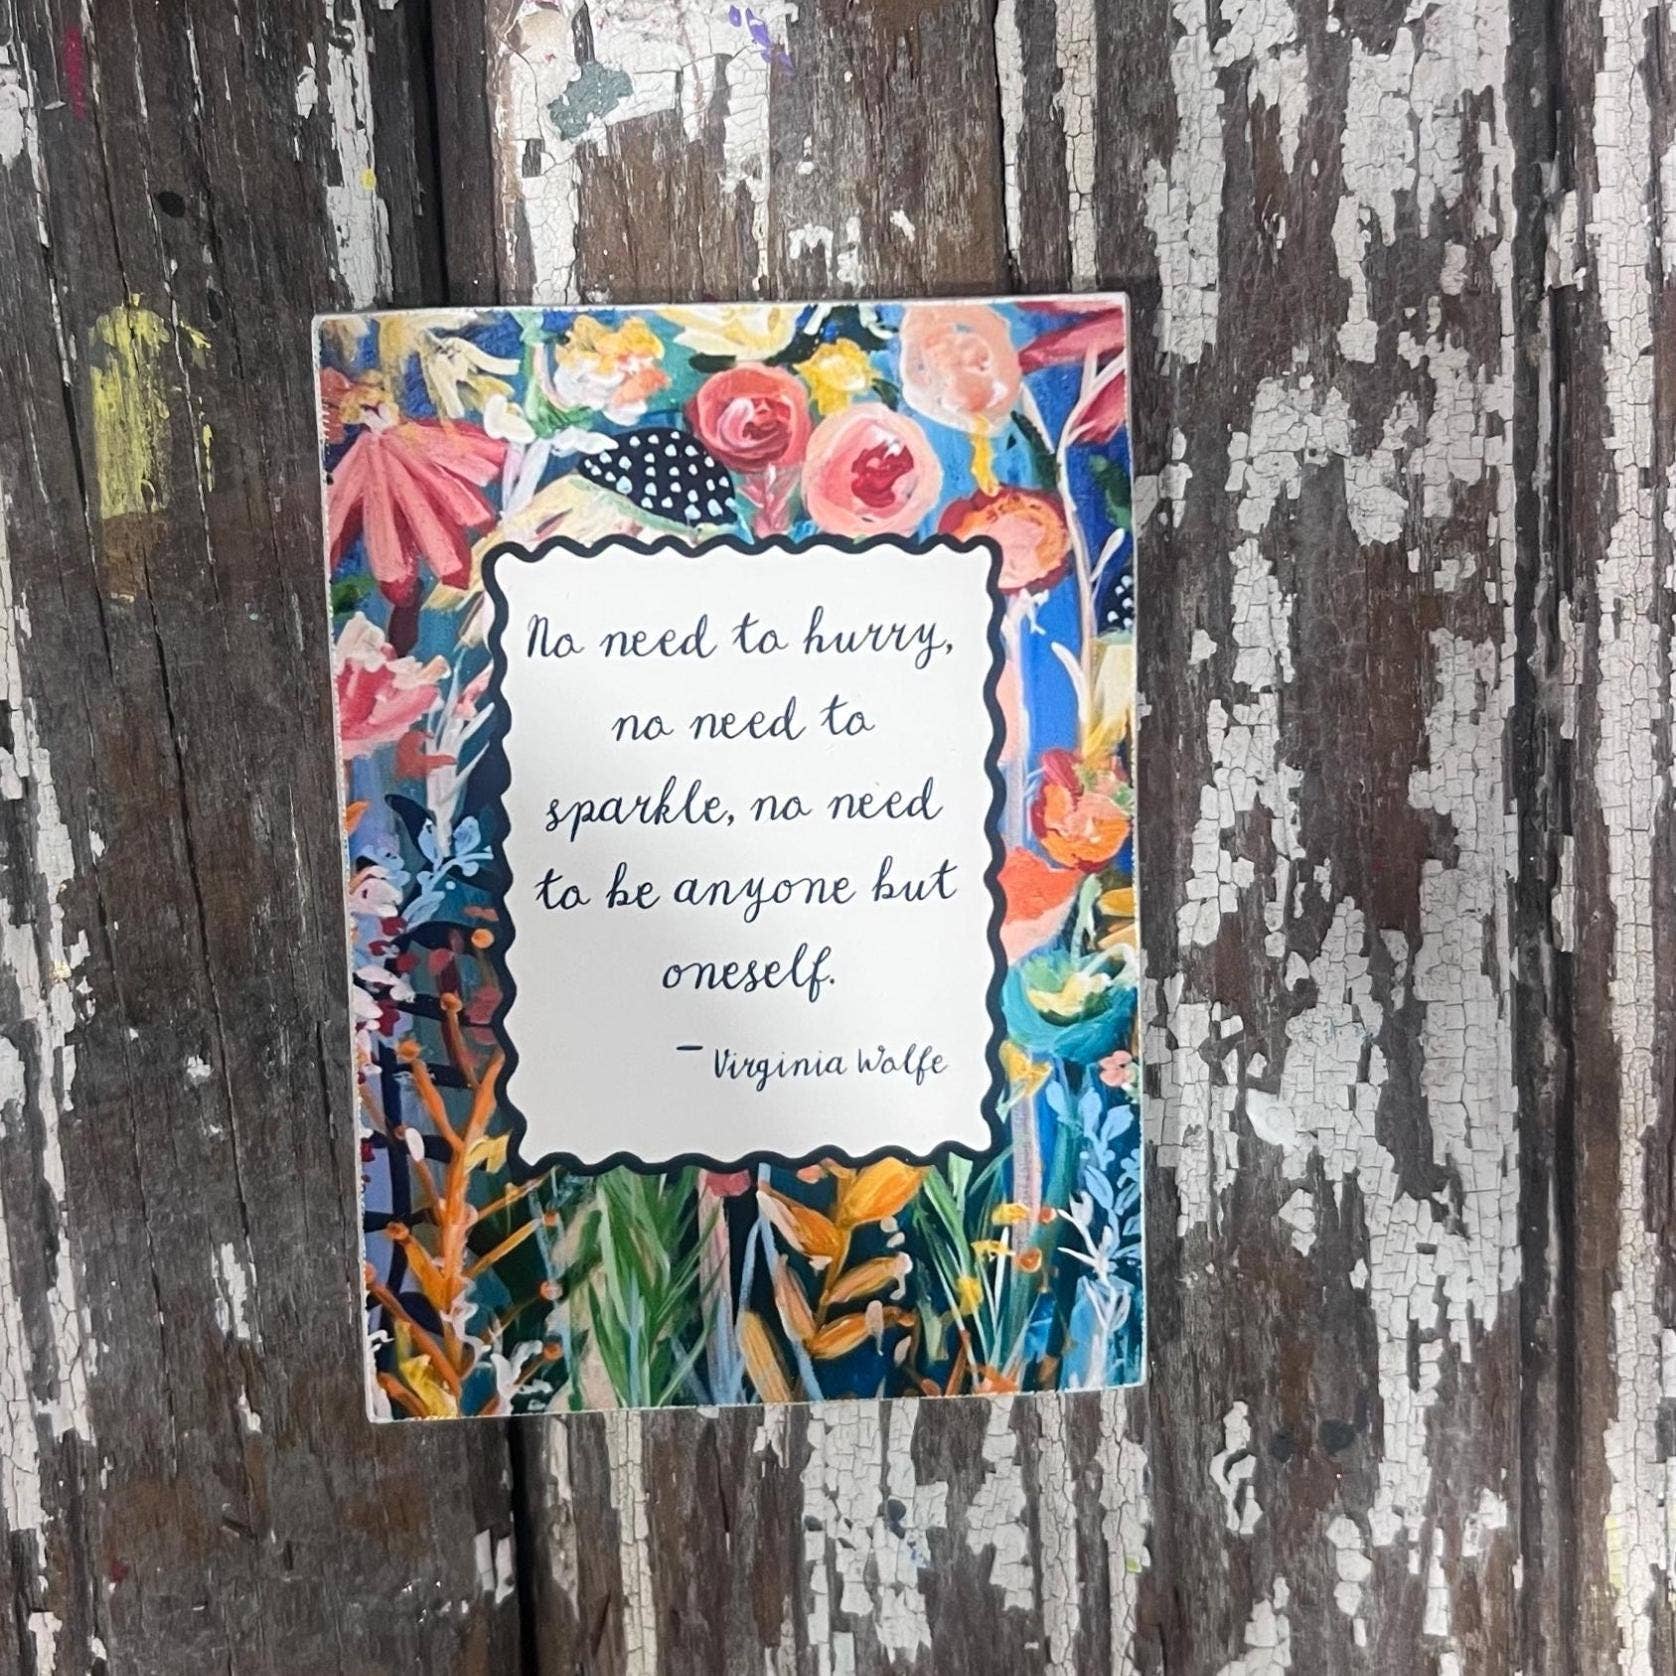 No need to hurry,
no need to
sparkle, no need
to be anyone but
oneself.
- Virginia Wolfe